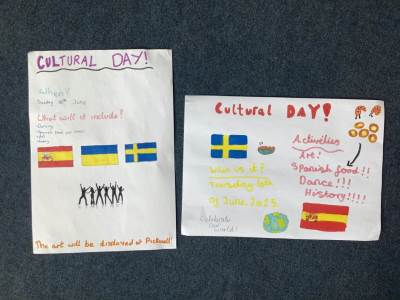 CULTURAL DAY!
When?
June
What will it include?
Dancing
Art
History
The art will be displayed at Pickwell!
Cultural DAY!
Activities
Art!
Spanish food!!
Dance!!!
History!!!!
When is it?
Tuesday 10th
of June 2025.
Celebrate
our
world!